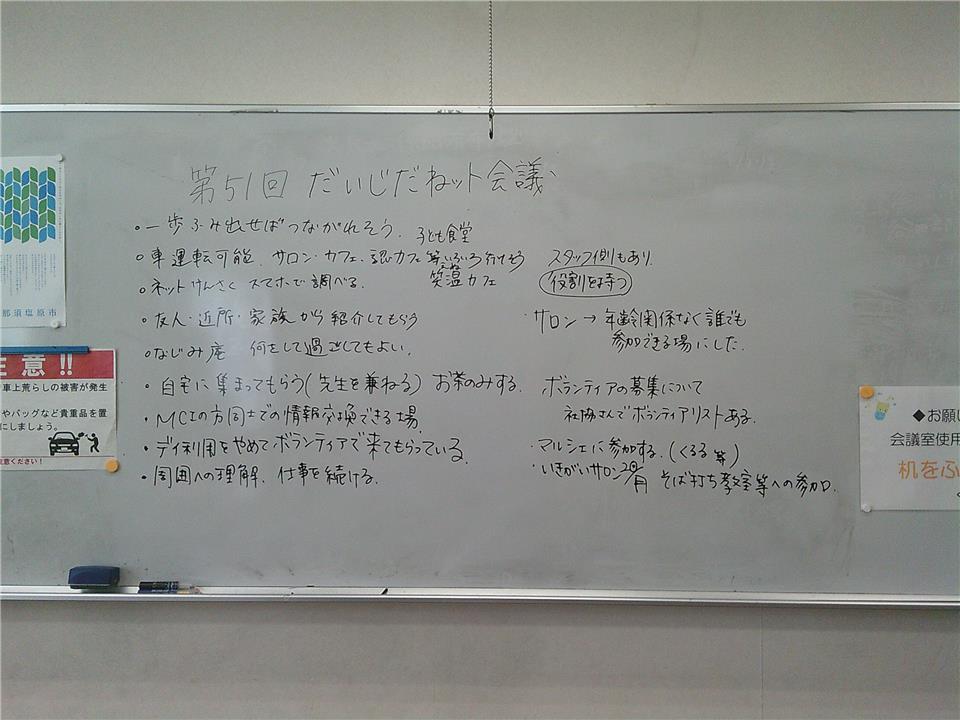 第51回 だいじだねット会議
・一歩ふみ出せばつながれそう。 子ども食堂
・車運転可能、サロン・カフェ・認カフェ等いろいろ行けそう
笑温カフェ
・ネットけんさく スマホで調べる。
・友人・近所・家族から紹介してもらう
・なじみ庵 何をして過ごしてもよい。
・自宅に集まってもらう(先生を兼ねる) お茶のみする。
・MCIの方同士での情報交換できる場。
・デイ利用をやめてボランティアで来てもらっている。
・周囲への理解、仕事を続ける。
スタッフ側もあり。
役割を持つ
・サロン→年齢関係なく誰でも
参加できる場にした。
ボランティアの募集について
社協さんでボランティアリストある。
・マルシェに参加する。(くるる等)
・いきがいサロン 2月 そば打ち教室等への参加。
那須塩原市
注意!!
車上荒らしの被害が発生
やバッグなど貴重品を置
にしましょう。
注意ください!
◆お願い
会議室使用
机をふ